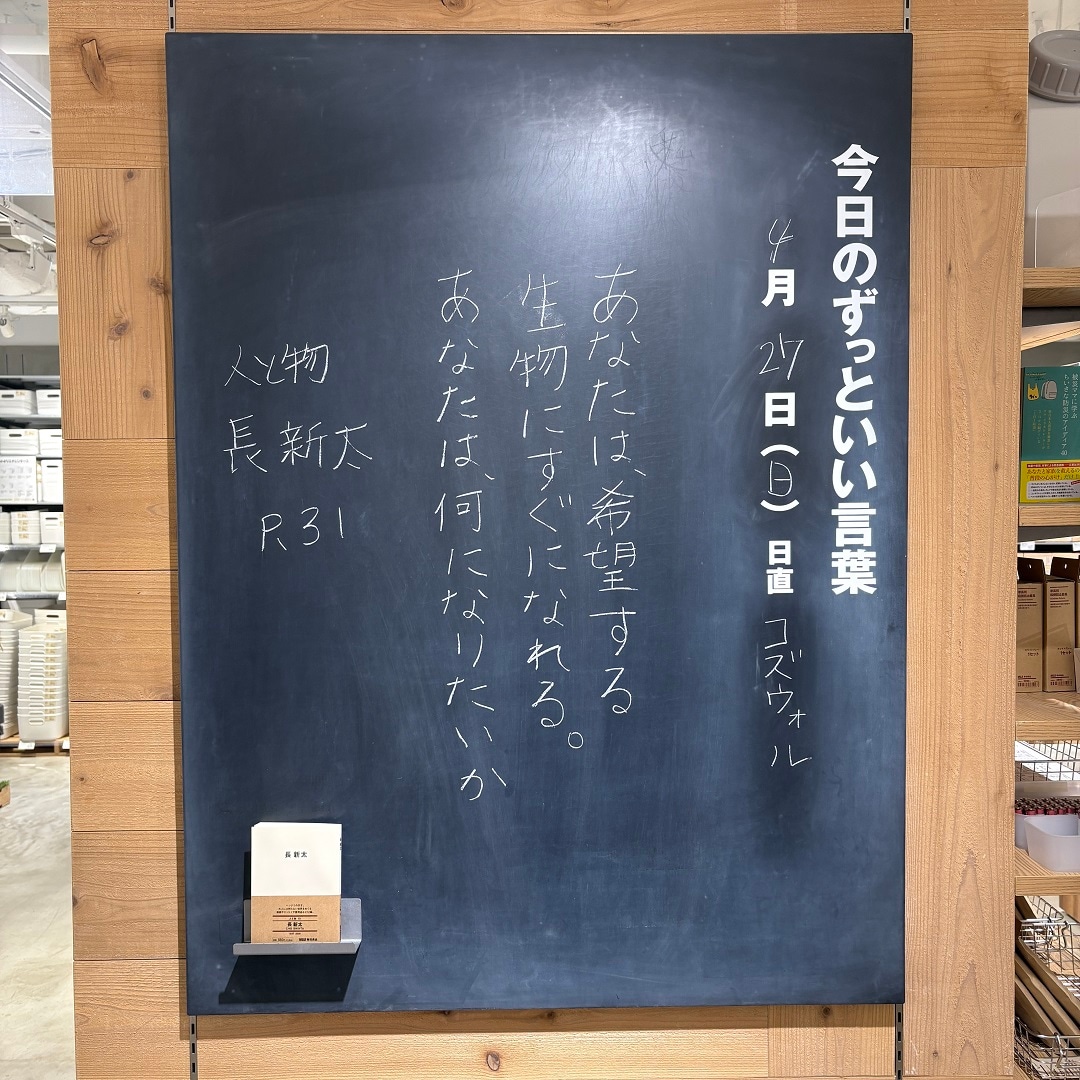 今日のずっといい言葉
4月27日(日) 日直 コズウォル
あなたは、希望する
生物にすぐになれる。
あなたは、何になりたいか
人と物
長 新太
P.31
長 新太
長 新太